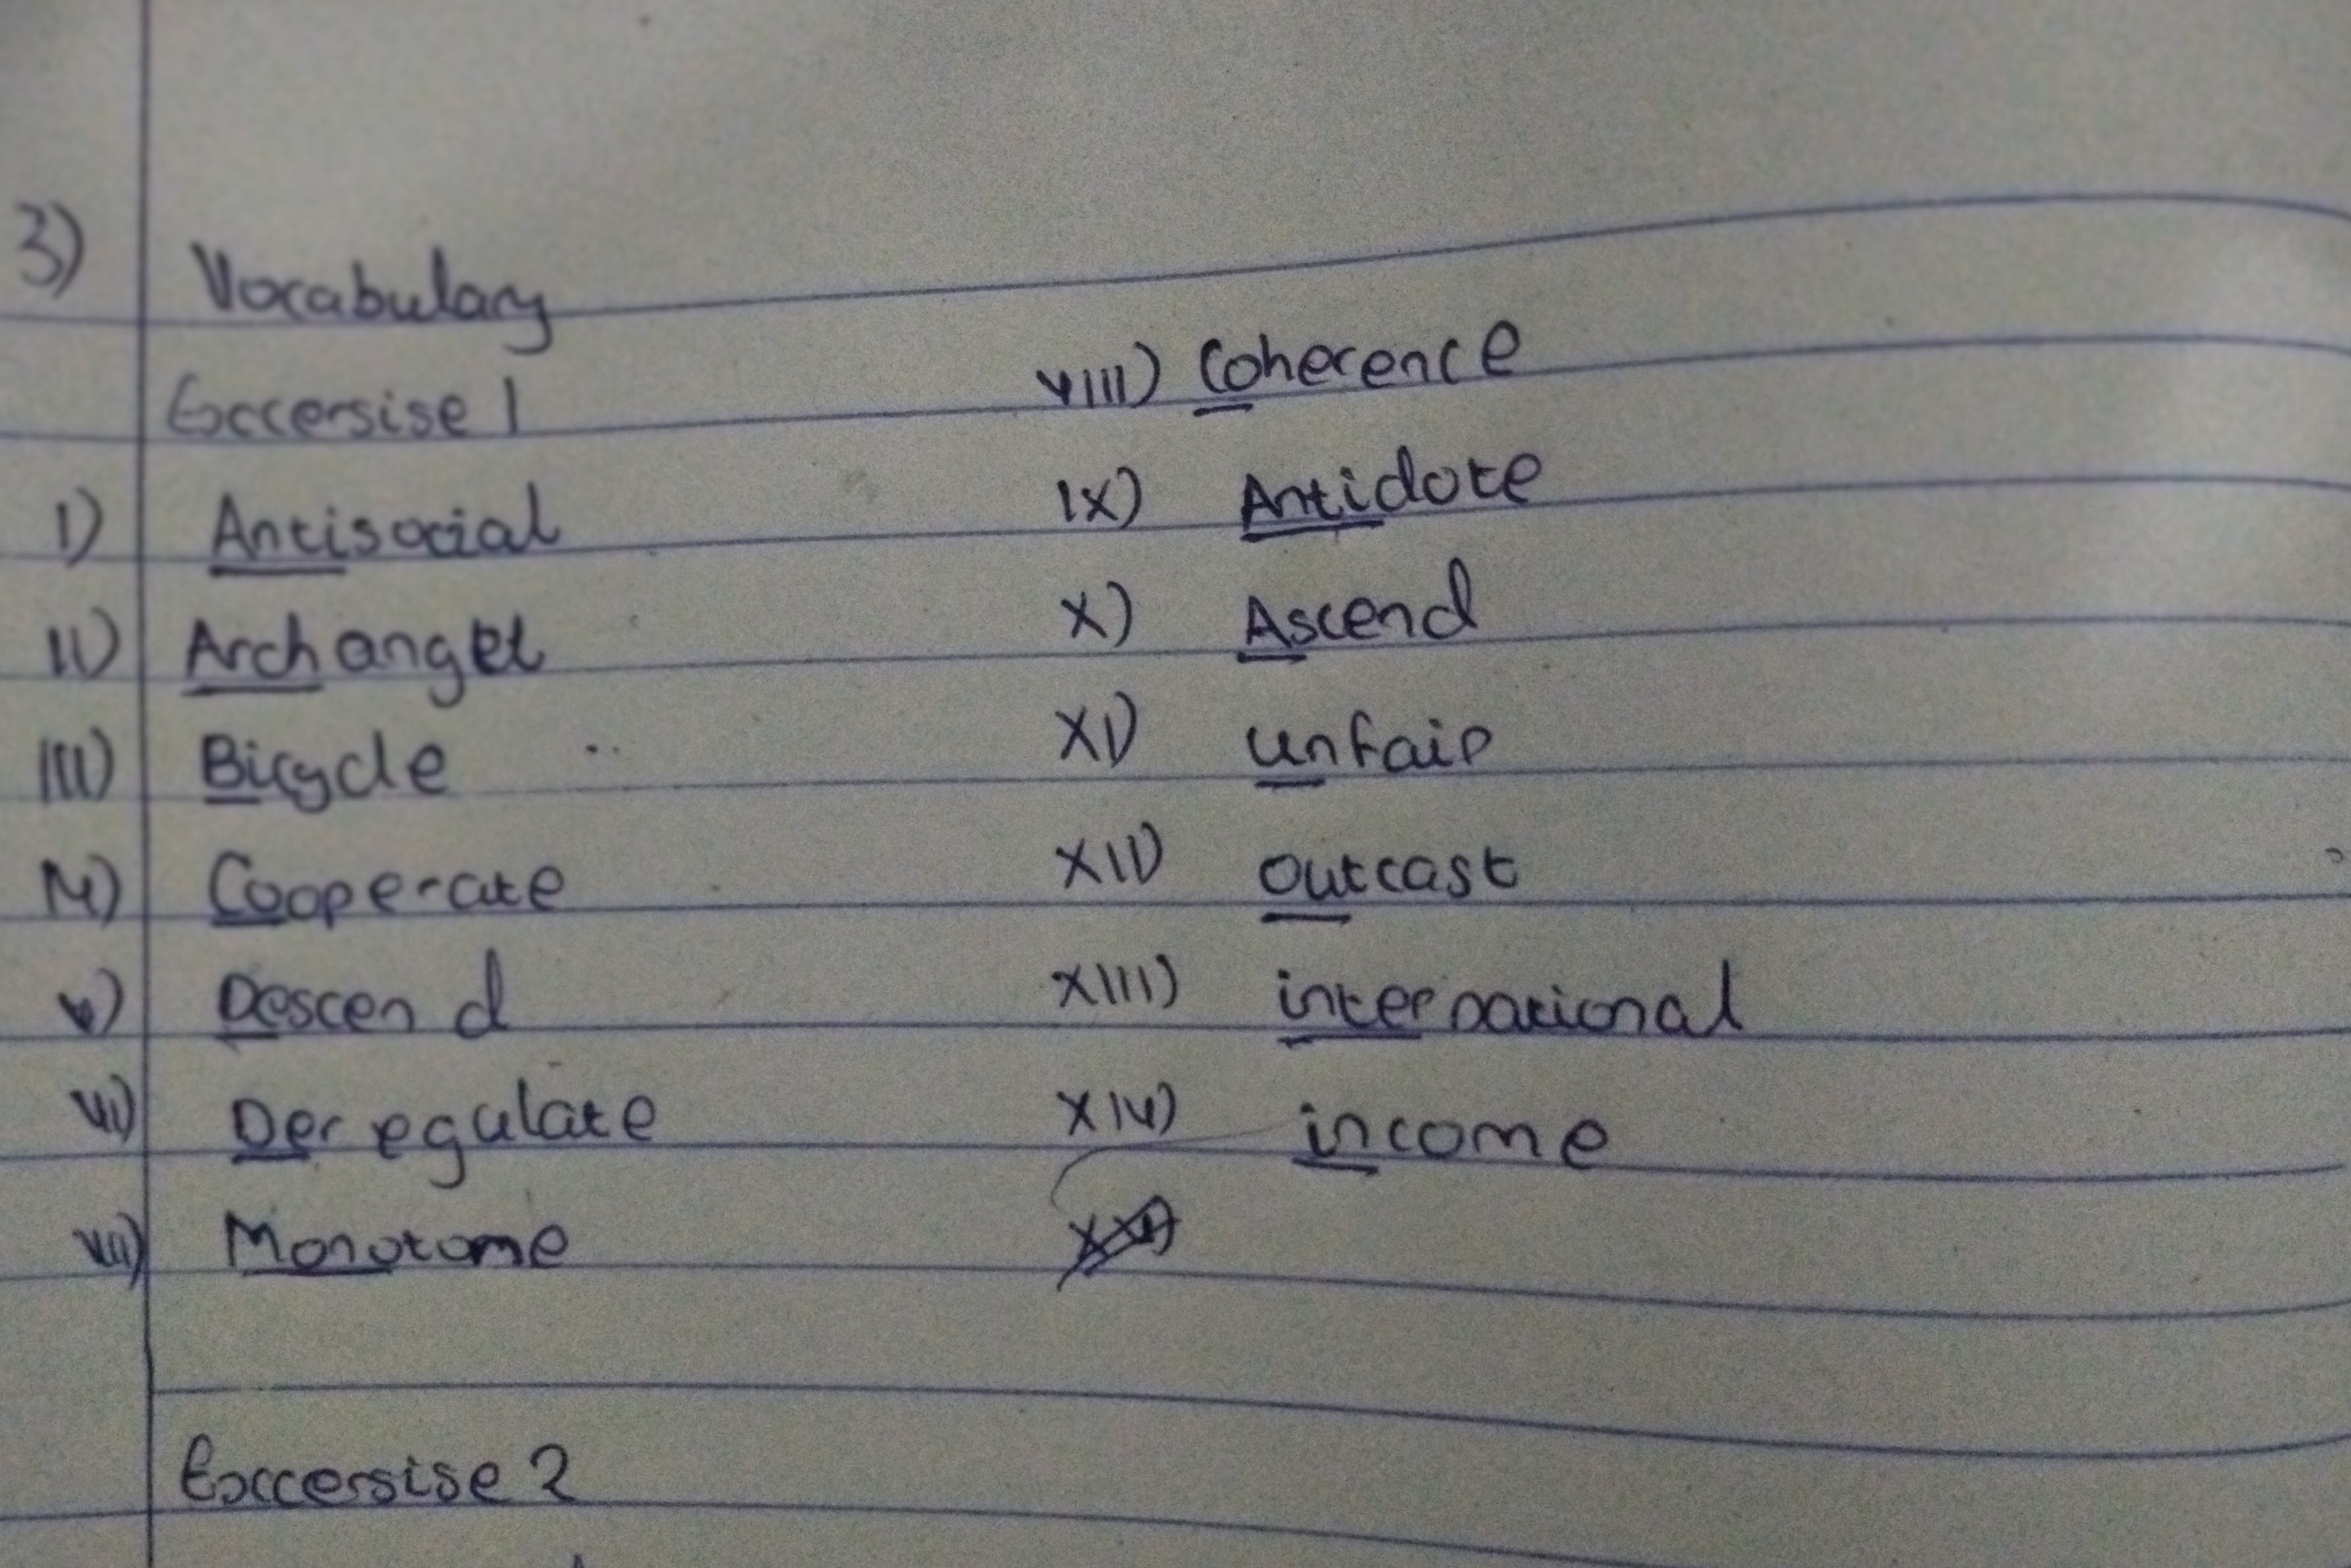 3) Vocabulary
Exccersise 1
I) Antisocial
II) Archangel
III) Bicycle
IV) Cooperate
V) Descend
VI) Deregulate
VII) Monotome
VIII) Coherence
IX) Antidote
X) Ascend
XI) unfair
XII) outcast
XIII) international
XIV) income
Exccersise 2